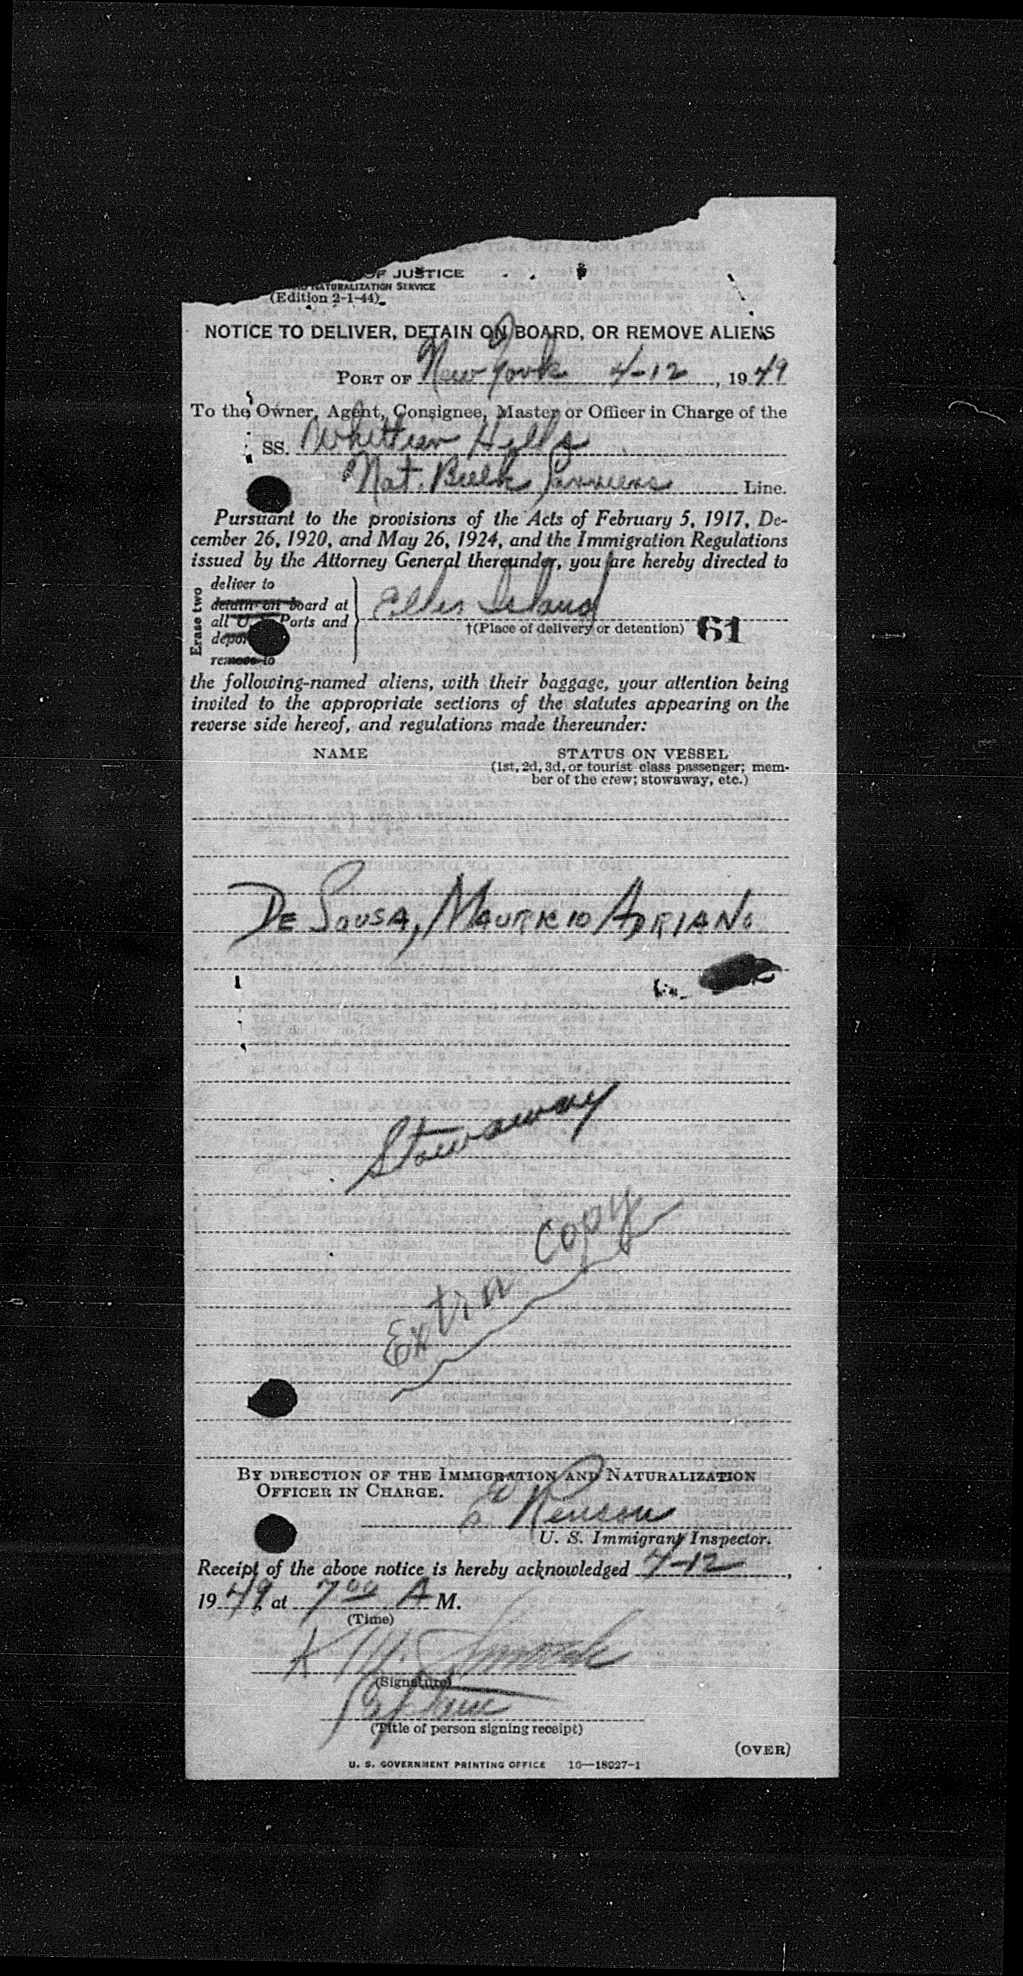 OF JUSTICE
NATURALIZATION SERVICE
(Edition 2-1-44)
NOTICE TO DELIVER, DETAIN ON BOARD, OR REMOVE ALIENS
PORT OF New York 4-12, 1949
To the Owner, Agent, Consignee, Master or Officer in Charge of the
SS. Whittier Hills
Nat. Bulk Carriers Line.
Pursuant to the provisions of the Acts of February 5, 1917, De-
cember 26, 1920, and May 26, 1924, and the Immigration Regulations
issued by the Attorney General thereunder, you are hereby directed to
Erase two
deliver to
detain on board at
all U. Ports and
remove to
Ellis Island
†(Place of delivery or detention) 61
the following-named aliens, with their baggage, your attention being
invited to the appropriate sections of the statutes appearing on the
reverse side hereof, and regulations made thereunder:
NAME STATUS ON VESSEL
(1st, 2d, 3d, or tourist class passenger; mem-
ber of the crew; stowaway, etc.)
DE SOUSA, MAURICIO ADRIANO
Stowaway
Extra copy
BY DIRECTION OF THE IMMIGRATION AND NATURALIZATION
OFFICER IN CHARGE.
U. S. Immigrant Inspector.
Receipt of the above notice is hereby acknowledged 4-12,
1949 at 7 00 A M.
(Time)
(Signature)
Captain
(Title of person signing receipt)
(OVER)
U. S. GOVERNMENT PRINTING OFFICE 16—18027-1